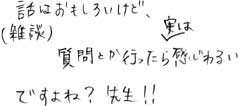 話はおもしろいけど、
(雑談)
実は
質問とか行ったら感じわるい
ですよね? 先生!!